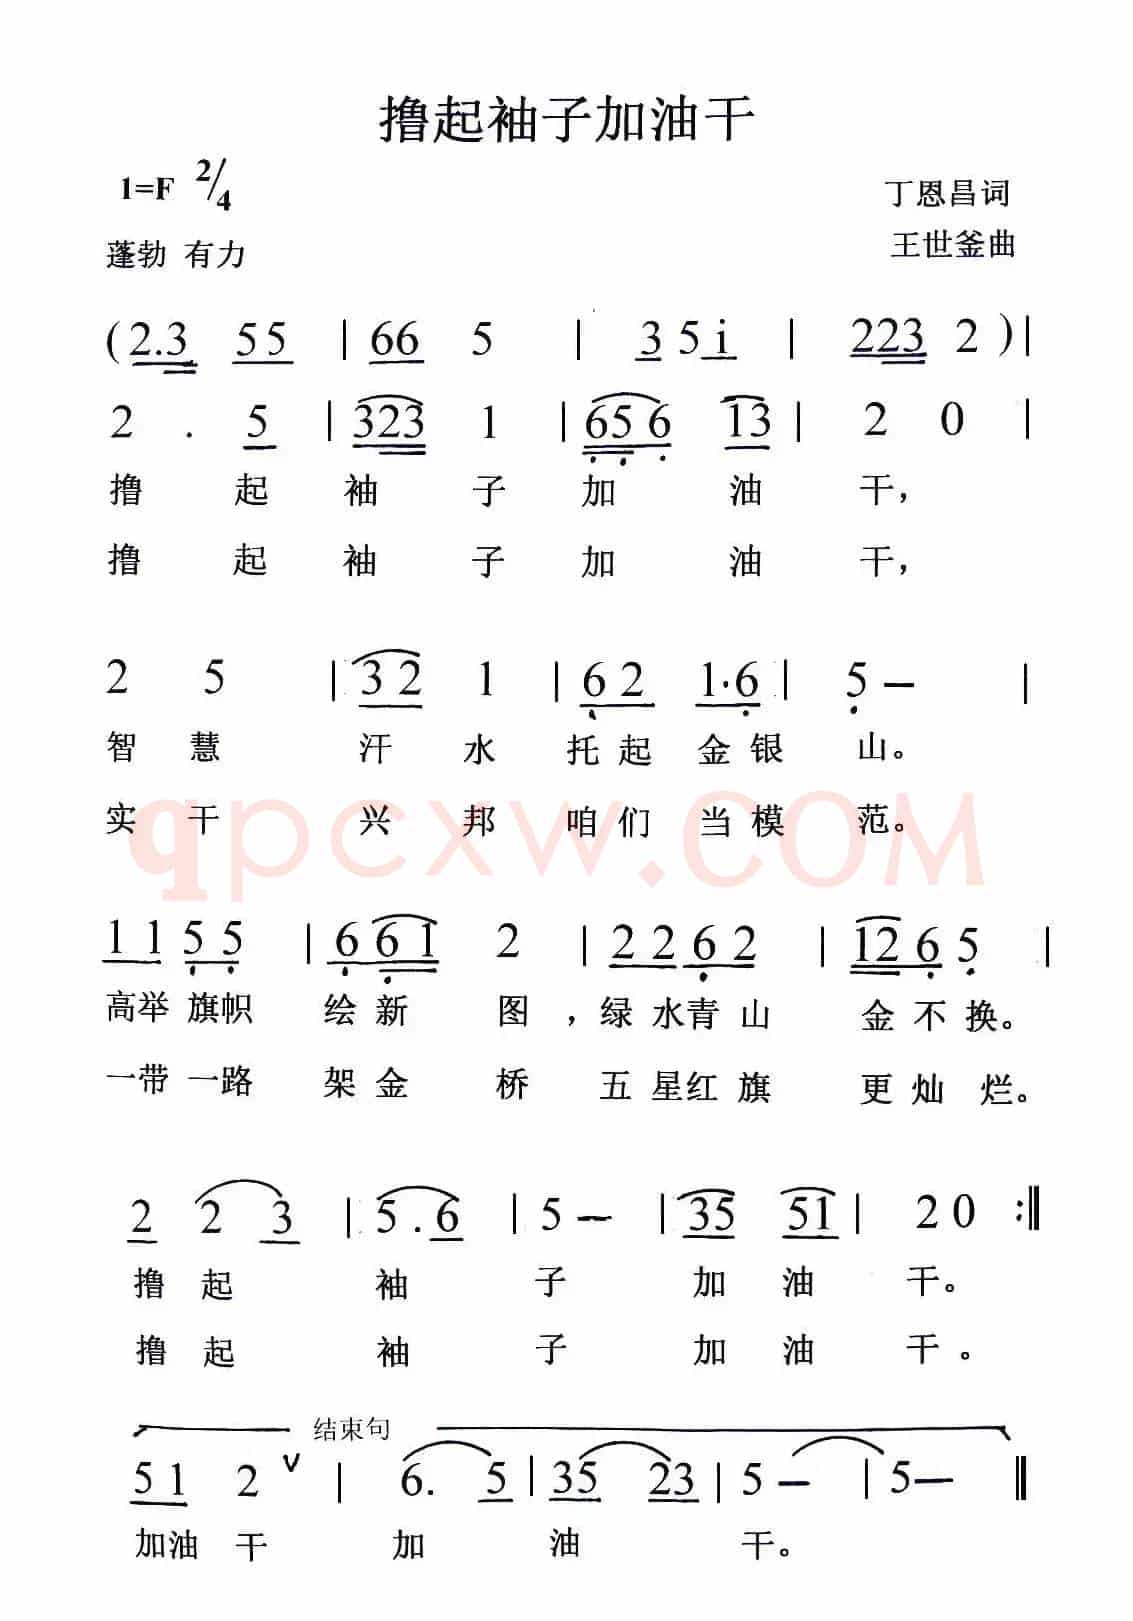 撸起袖子加油干
1=F 2/4
丁恩昌词
蓬勃 有力
王世釜曲
(2.3 55 | 66 5 | 3 5 i | 223 2 )|
2 . 5 | 323 1 | 656 13 | 2 0 |
撸 起 袖 子 加 油 干，
撸 起 袖 子 加 油 干，
2 5 | 3 2 1 | 6 2 1·6 | 5 – |
智 慧 汗 水 托 起 金 银 山。
实 干 兴 邦 咱 们 当 模 范。
qpcxw.COM
1 1 5 5 | 6 6 1 2 | 2 2 6 2 | 12 6 5 |
高举 旗帜 绘 新 图 ，绿 水青 山 金 不 换。
一带 一路 架 金 桥 五 星红 旗 更 灿 烂。
2 2 3 | 5 . 6 | 5 – | 35 51 | 2 0 :‖
撸 起 袖 子 加 油 干。
撸 起 袖 子 加 油 干 。
结束句
5 1 2 V | 6. 5 | 35 23 | 5 – | 5 – ‖
加油 干 加 油 干。